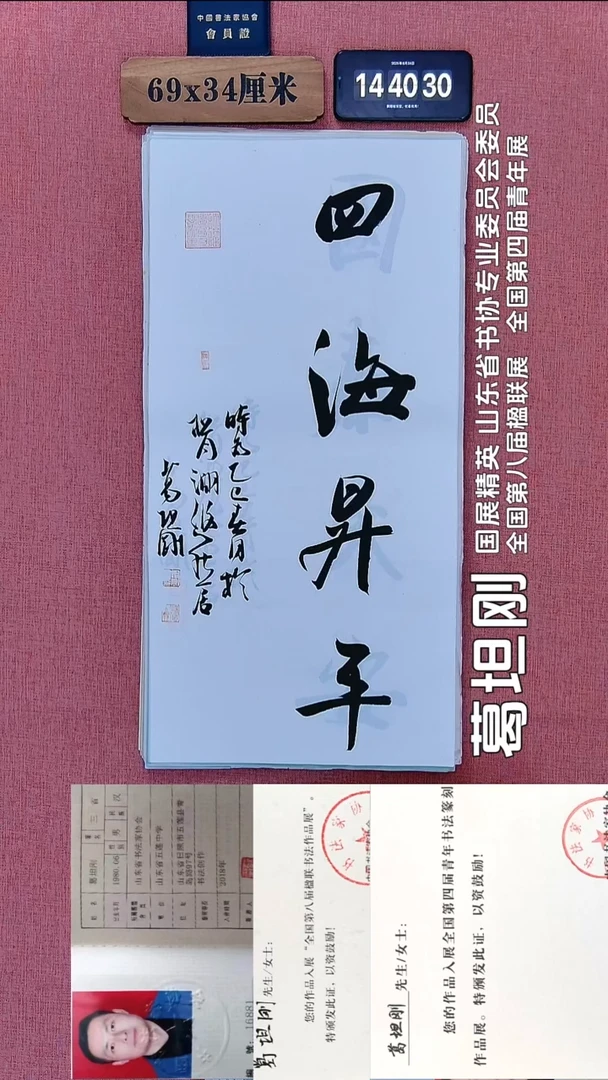 中國書法家協會
會員證
69x34厘米
14 40 30
四海昇平
時在乙巳春月於
葛坦刚
国展精英 山东省书协专业委员会委员
全国第八届楹联展 全国第四届青年展
葛坦刚
姓名 葛坦刚
1980.06
男
汉
山东省书法家协会
山东省五莲中学
2018年
16881
葛坦刚 先生/女士:
您的作品入展“全国第八届楹联书法作品展”。
特颁发此证,以资鼓励!
葛坦刚 先生/女士:
您的作品入展全国第四届青年书法篆刻
作品展。特颁发此证,以资鼓励!